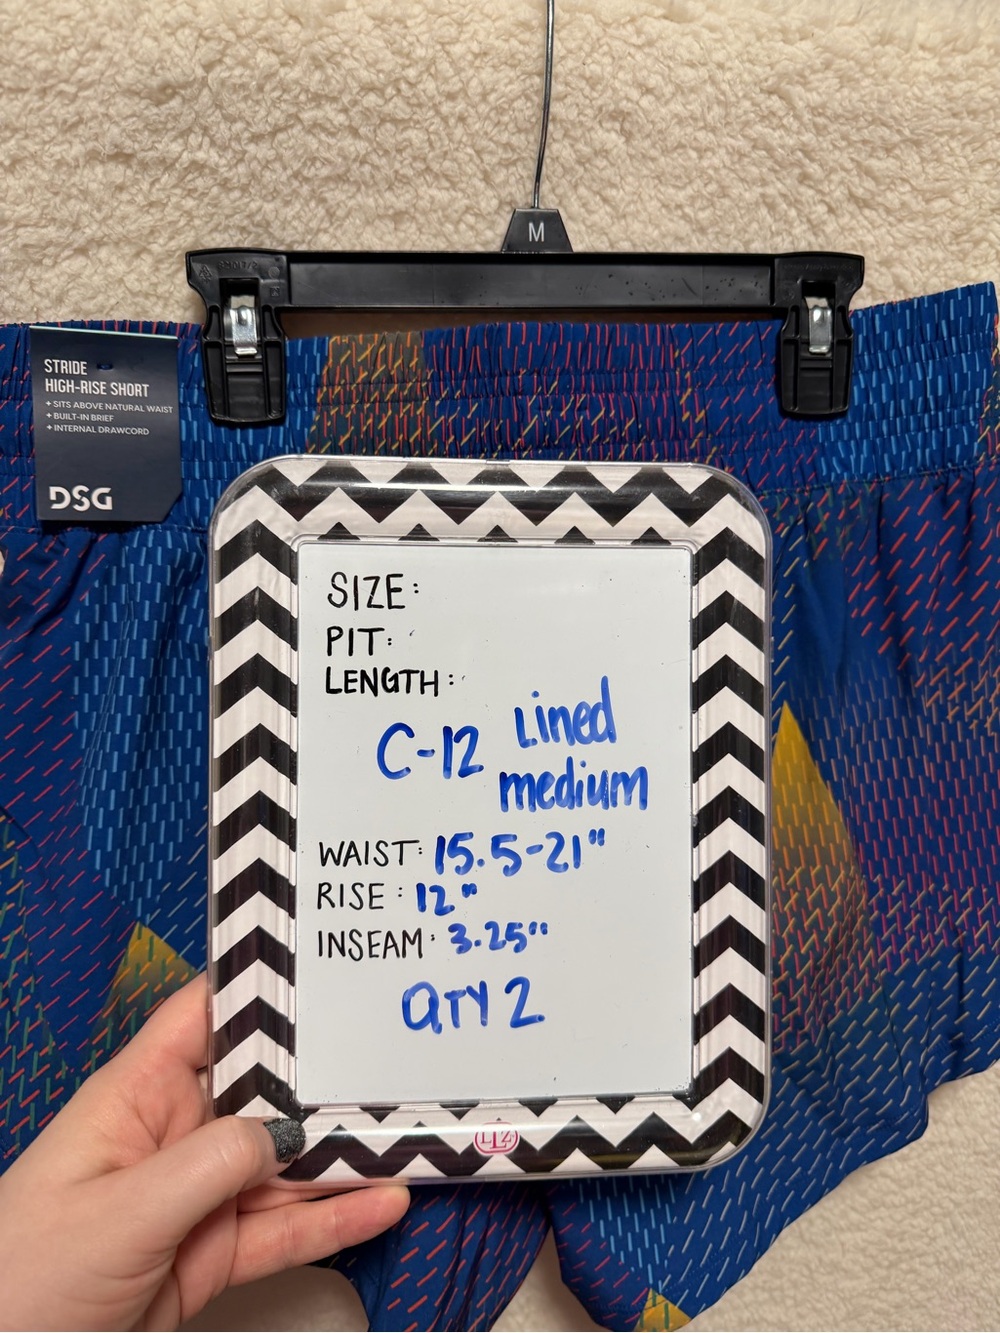 M
STRIDE
HIGH-RISE SHORT
+ SITS ABOVE NATURAL WAIST
+ BUILT-IN BRIEF
+ INTERNAL DRAWCORD
DSG
SIZE:
PIT:
LENGTH:
C-12 Lined
medium
WAIST: 15.5-21"
RISE: 12"
INSEAM: 3.25"
QTY 2
LLZ